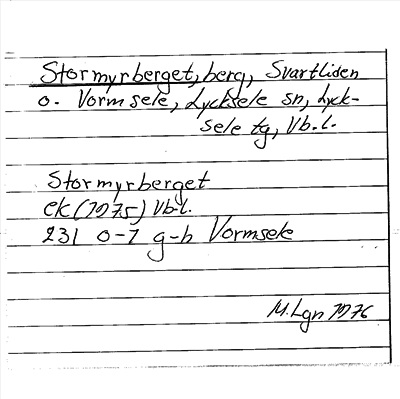 Stormyrberget, berg, Svartliden
o. Vormsele, Lycksele sn, Lyck-
sele tg, Vb.l.
Stormyrberget
ek (1975) Vb.l.
231 0-1 g-h Vormsele
M. Lgn 1976